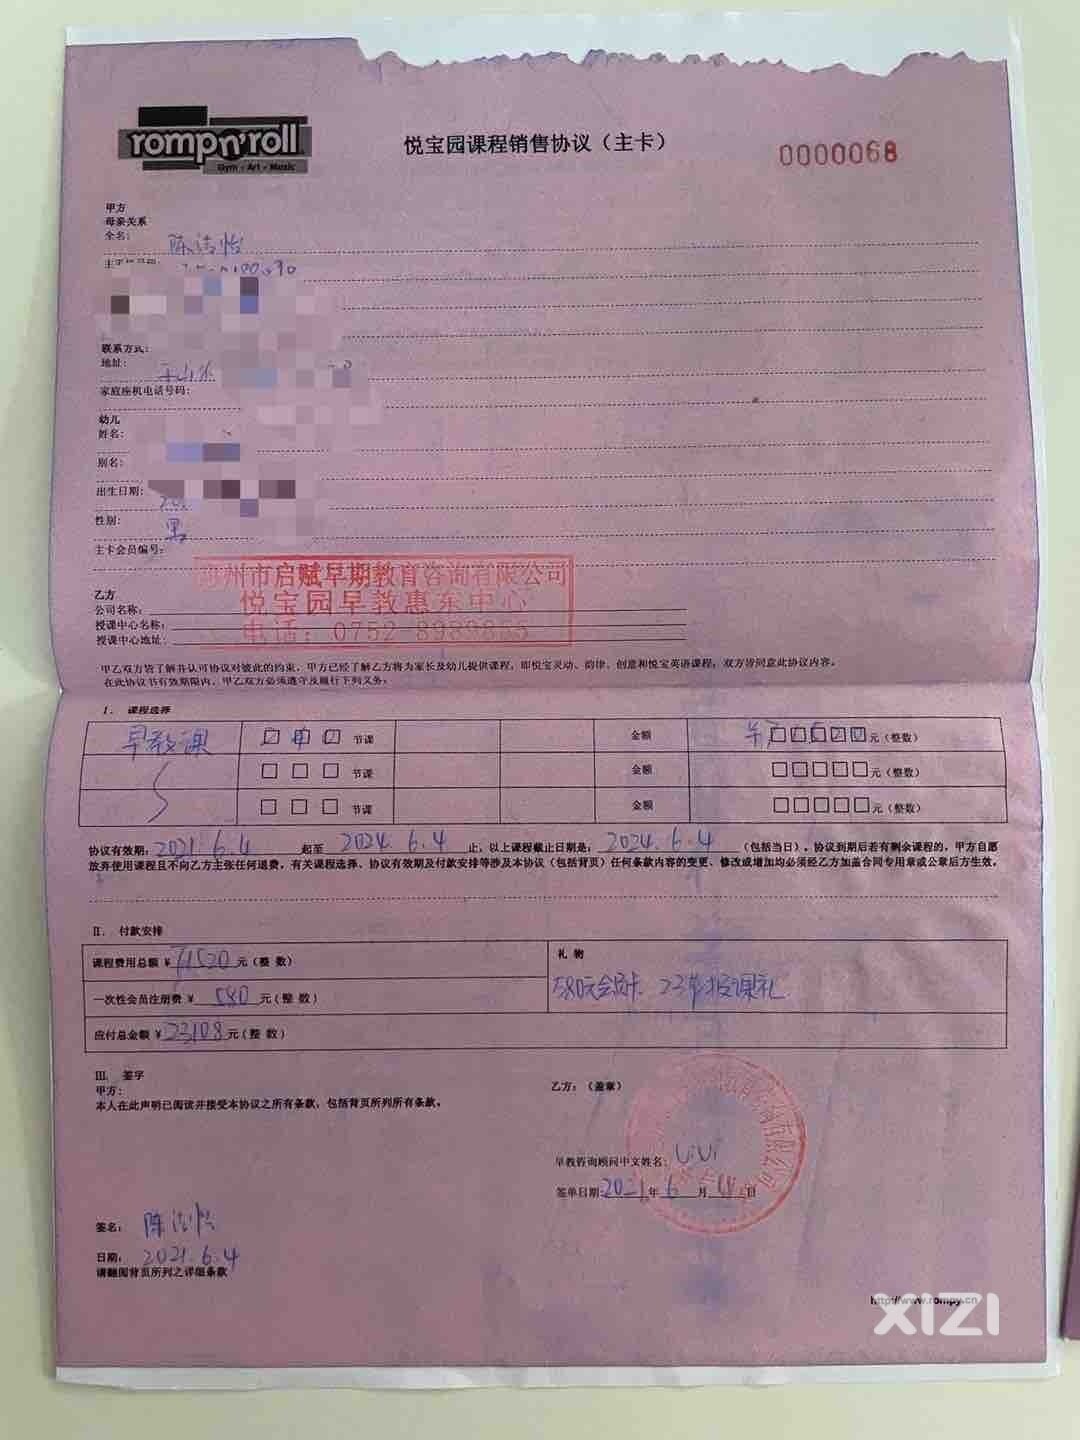 romp n' roll
Gym · Art · Music
悦宝园课程销售协议（主卡）
0000068
甲方
母亲关系
全名：
联系方式：
地址：
家庭座机电话号码：
幼儿
姓名：
别名：
出生日期：
性别： 男
主卡会员编号：
州市启赋早期教育咨询有限公司
悦宝园早教惠东中心
电话：0752-8989855
乙方
公司名称：
授课中心名称：
授课中心地址：
甲乙双方皆了解并认可协议对彼此的约束，甲方已经了解乙方将为家长及幼儿提供课程，即悦宝灵动、韵律、创意和悦宝英语课程，双方皆同意此协议内容。
在此协议书有效期限内，甲乙双方必须遵守及履行下列义务：
I. 课程选择
早教课 节课 金额 元（整数）
节课 金额 元（整数）
节课 金额 元（整数）
协议有效期：2021.6.4 起至 2024.6.4 止，以上课程截止日期是：2024.6.4（包括当日），协议到期后若有剩余课程的，甲方自愿
放弃使用课程且不向乙方主张任何退费，有关课程选择、协议有效期及付款安排等涉及本协议（包括背页）任何条款内容的变更、修改或增加均必须经乙方加盖合同专用章或公章后方生效。
II. 付款安排
课程费用总额 ¥ 元（整 数）
一次性会员注册费 ¥ 580 元（整 数）
应付总金额 ¥ 23108 元（整 数）
礼 物
580元会员卡
III. 签字
甲方：
本人在此声明已阅读并接受本协议之所有条款，包括背页所列所有条款。
乙方：（盖章）
早教咨询顾问中文姓名： ViVi
签单日期：2021年 6 月 4 日
签名： 陈洁怡
日期： 2021.6.4
请翻阅背页所列之详细条款
http://www.rompy.cn
XIZI